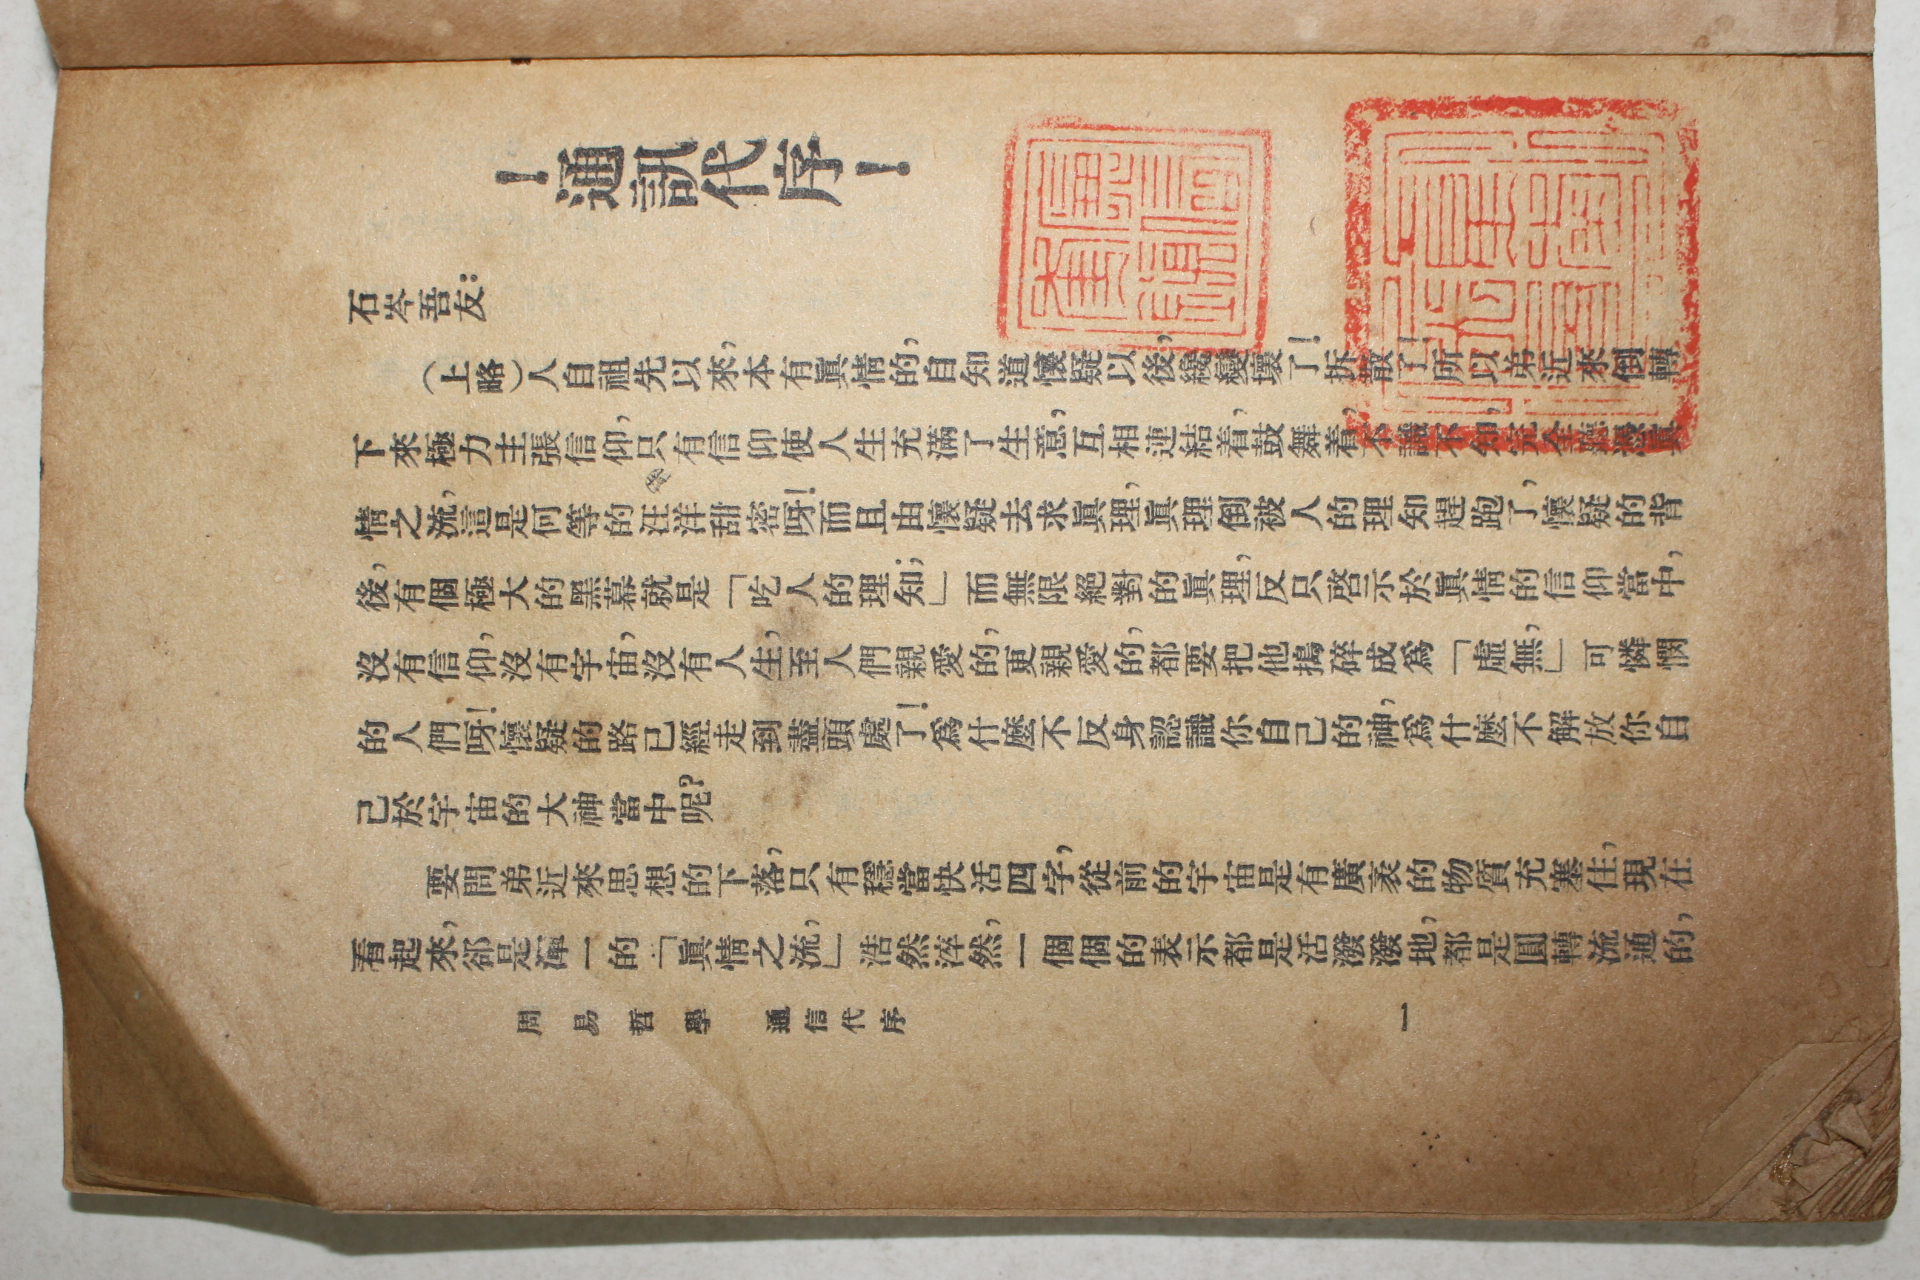 ！通訊代序！
石岑吾友：
（上略）人自祖先以來，本有眞情的，自知道懷疑以後，纔變壞了！拆散了！所以弟近來倒轉
下來極力主張信仰，只有信仰使人生充滿了生意，互相連結着，鼓舞着，不識不知，完全聽憑眞
情之流，這是何等的汪洋甜密呀！而且由懷疑去求眞理，眞理倒被人的理知趕跑了，懷疑的背
後，有個極大的黑幕就是「吃人的理知；」而無限絕對的眞理，反只啓示於眞情的信仰當中，
沒有信仰，沒有宇宙，沒有人生，至人們親愛的，更親愛的，都要把他搗碎成爲「虛無，」可憐憫
的人們呀！懷疑的路已經走到盡頭處了！爲什麼不反身認識你自己的神，爲什麼不解放你自
己於宇宙的大神當中呢？
要問弟近來思想的下落，只有穩當快活四字，從前的宇宙是有廣袤的物質充塞住，現在
看起來，郤是渾一的「眞情之流，」浩然淬然，一個個的表示都是活潑潑地，都是圓轉流通的，
周易哲學　通信代序
一